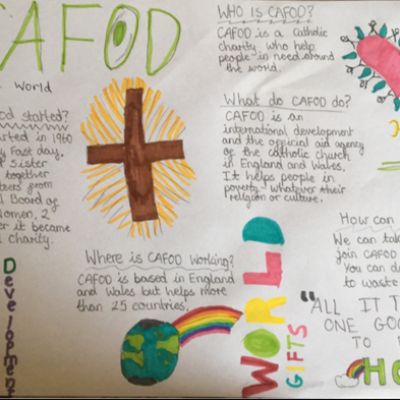 CAFOD
World
started?
started in 1960
Fast day.
sister
together
from
Board of
women, 2
it became
charity.
Development
Where is CAFOD working?
CAFOD is based in England
and Wales but helps more
than 25 countries.
WHO IS CAFOD?
CAFOD is a Catholic
charity who help
people in need around
the world.
What do CAFOD do?
CAFOD is an
international development
and the official aid agency
of the Catholic church
in England and Wales.
It helps people in
poverty whatever their
religion or culture.
WORLD
GIFTS
How can
We can
join CAFOD
You can
to waste
"ALL IT
ONE GOO
TO